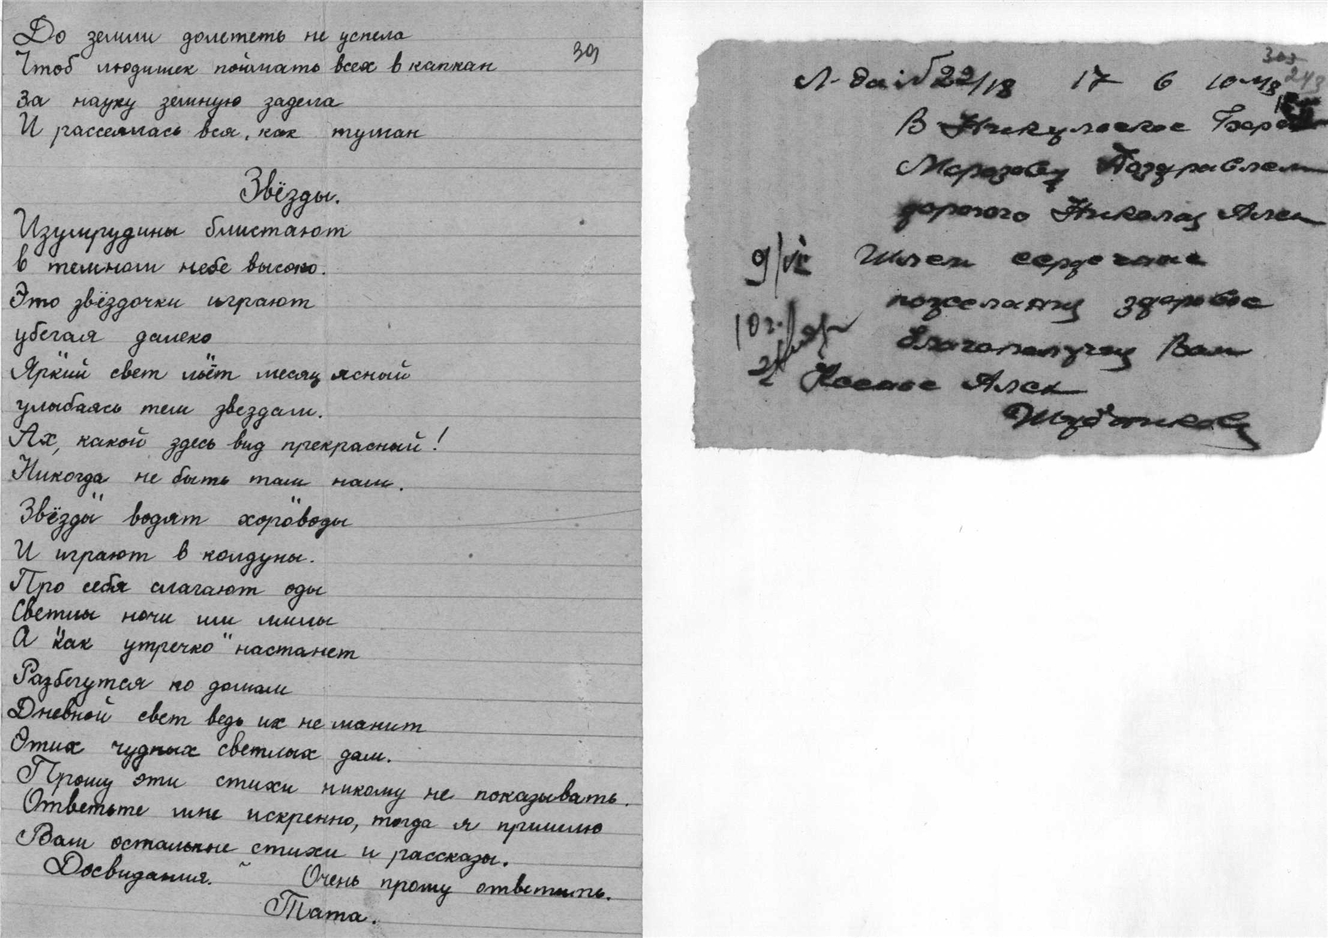 До земли долететь не успела
301
Чтоб людишек поймать всех в капкан
За науку земную задела
И рассеялась вся, как туман
Звёзды.
Изумрудины блистают
в темном небе высоко.
Это звёздочки играют
убегая далеко
Яркий свет льёт месяц ясный
улыбаясь тем звездам.
Ах, какой здесь вид прекрасный!
Никогда не быть там нам.
Звёзды водят хороводы
И играют в колдуны.
Про себя слагают оды
Светлы ночи им милы
А "как утречко" настанет
Разбегутся по домам
Дневной свет ведь их не манит
Этих чудных светлых дам.
Прошу эти стихи никому не показывать.
Ответьте мне искренно, тогда я пришлю
Вам остальные стихи и рассказы.
Досвидания. Очень прошу ответить.
Тата.
243
Л-да № 22/18 17 6 10
В Никульское
Морозову Поздравляем
дорогого Николая Алек
9/VI Шлем сердечные
пожелания здоровье
10 г.
благополучия Вам
Ксенье Алек
Шубников